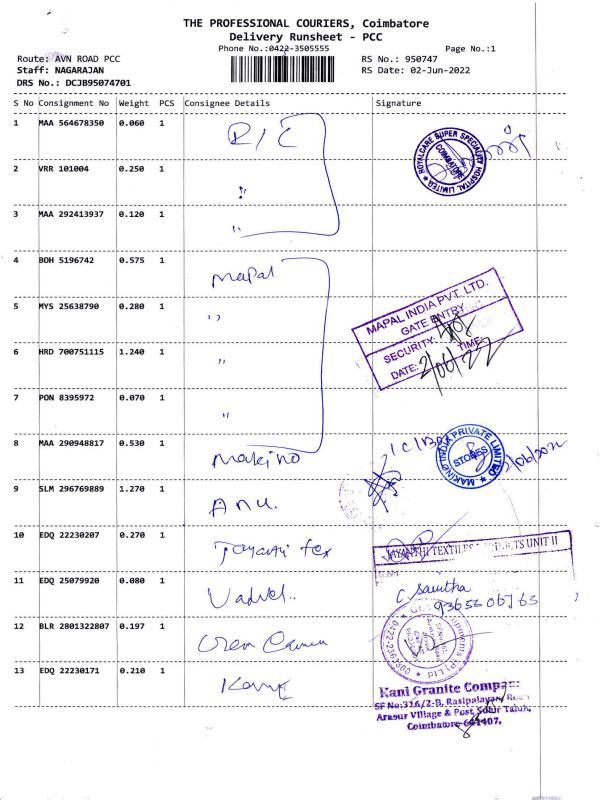 THE PROFESSIONAL COURIERS, Coimbatore
Delivery Runsheet - PCC
Phone No.:0422-3505555
Page No.:1
Route: AVN ROAD PCC
RS No.: 950747
Staff: NAGARAJAN
RS Date: 02-Jun-2022
DRS No.: DCJB95074701
S No Consignment No Weight PCS Consignee Details Signature
1 MAA 564678350 0.060 1 R/C
ROYALCARE SUPER SPECIALITY HOSPITAL LIMITED
COIMBATORE
2 VRR 101004 0.250 1 "
3 MAA 292413937 0.120 1 "
4 BOH 5196742 0.575 1 Mapal
5 MYS 25638790 0.280 1 "
MAPAL INDIA PVT. LTD.
GATE ENTRY
SECURITY:
TIME:
DATE: 2/06/22
6 HRD 700751115 1.240 1 "
7 PON 8395972 0.070 1 "
8 MAA 290948817 0.530 1 Makino
MAKINO INDIA PRIVATE LIMITED
STORES
9 SLM 296769889 1.270 1 Anu.
10 EDQ 22230207 0.270 1 Jayanti tex
JAYANTHI TEXTILES UNIT II
11 EDQ 25079920 0.080 1
C. Savitha
12 BLR 2801322807 0.197 1
13 EDQ 22230171 0.210 1
Kani Granite Company
SF No:316/2-B, Rasipalayam Road
Arasur Village & Post, Sulur Taluk,
Coimbatore-641407.